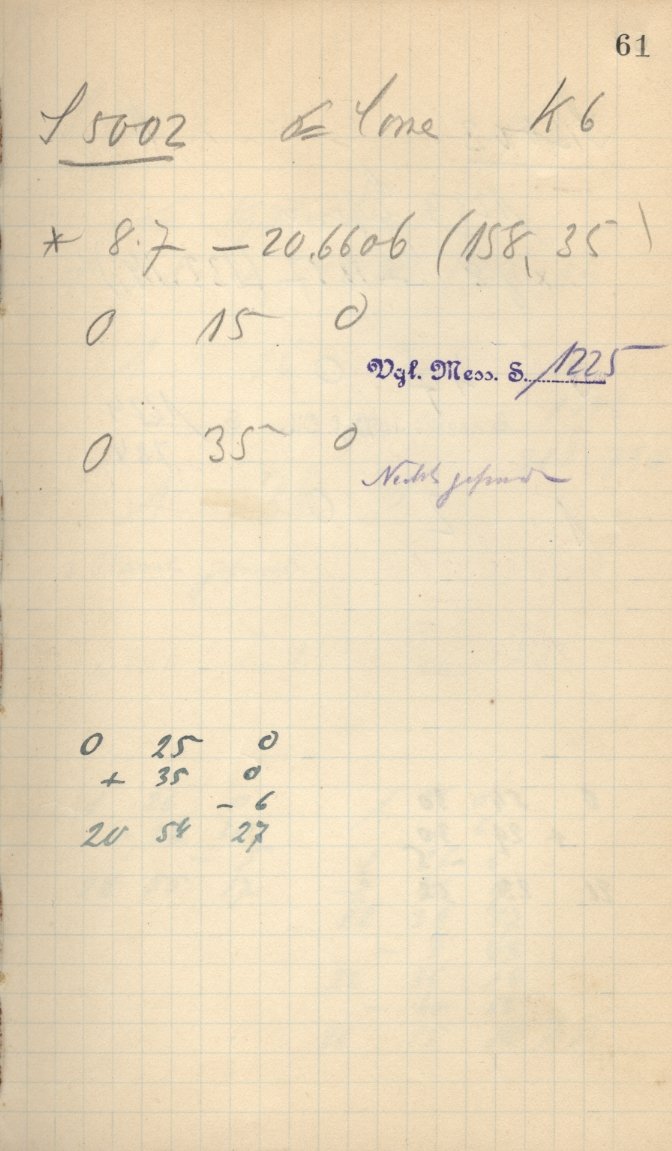 61
5002 K 6
* 8.7 – 20.6606 (158, 35)
0 15 0
Vgl. Mess. S. 1225
0 35 0
0 25 0
+ 35 0
– 6
20 54 27